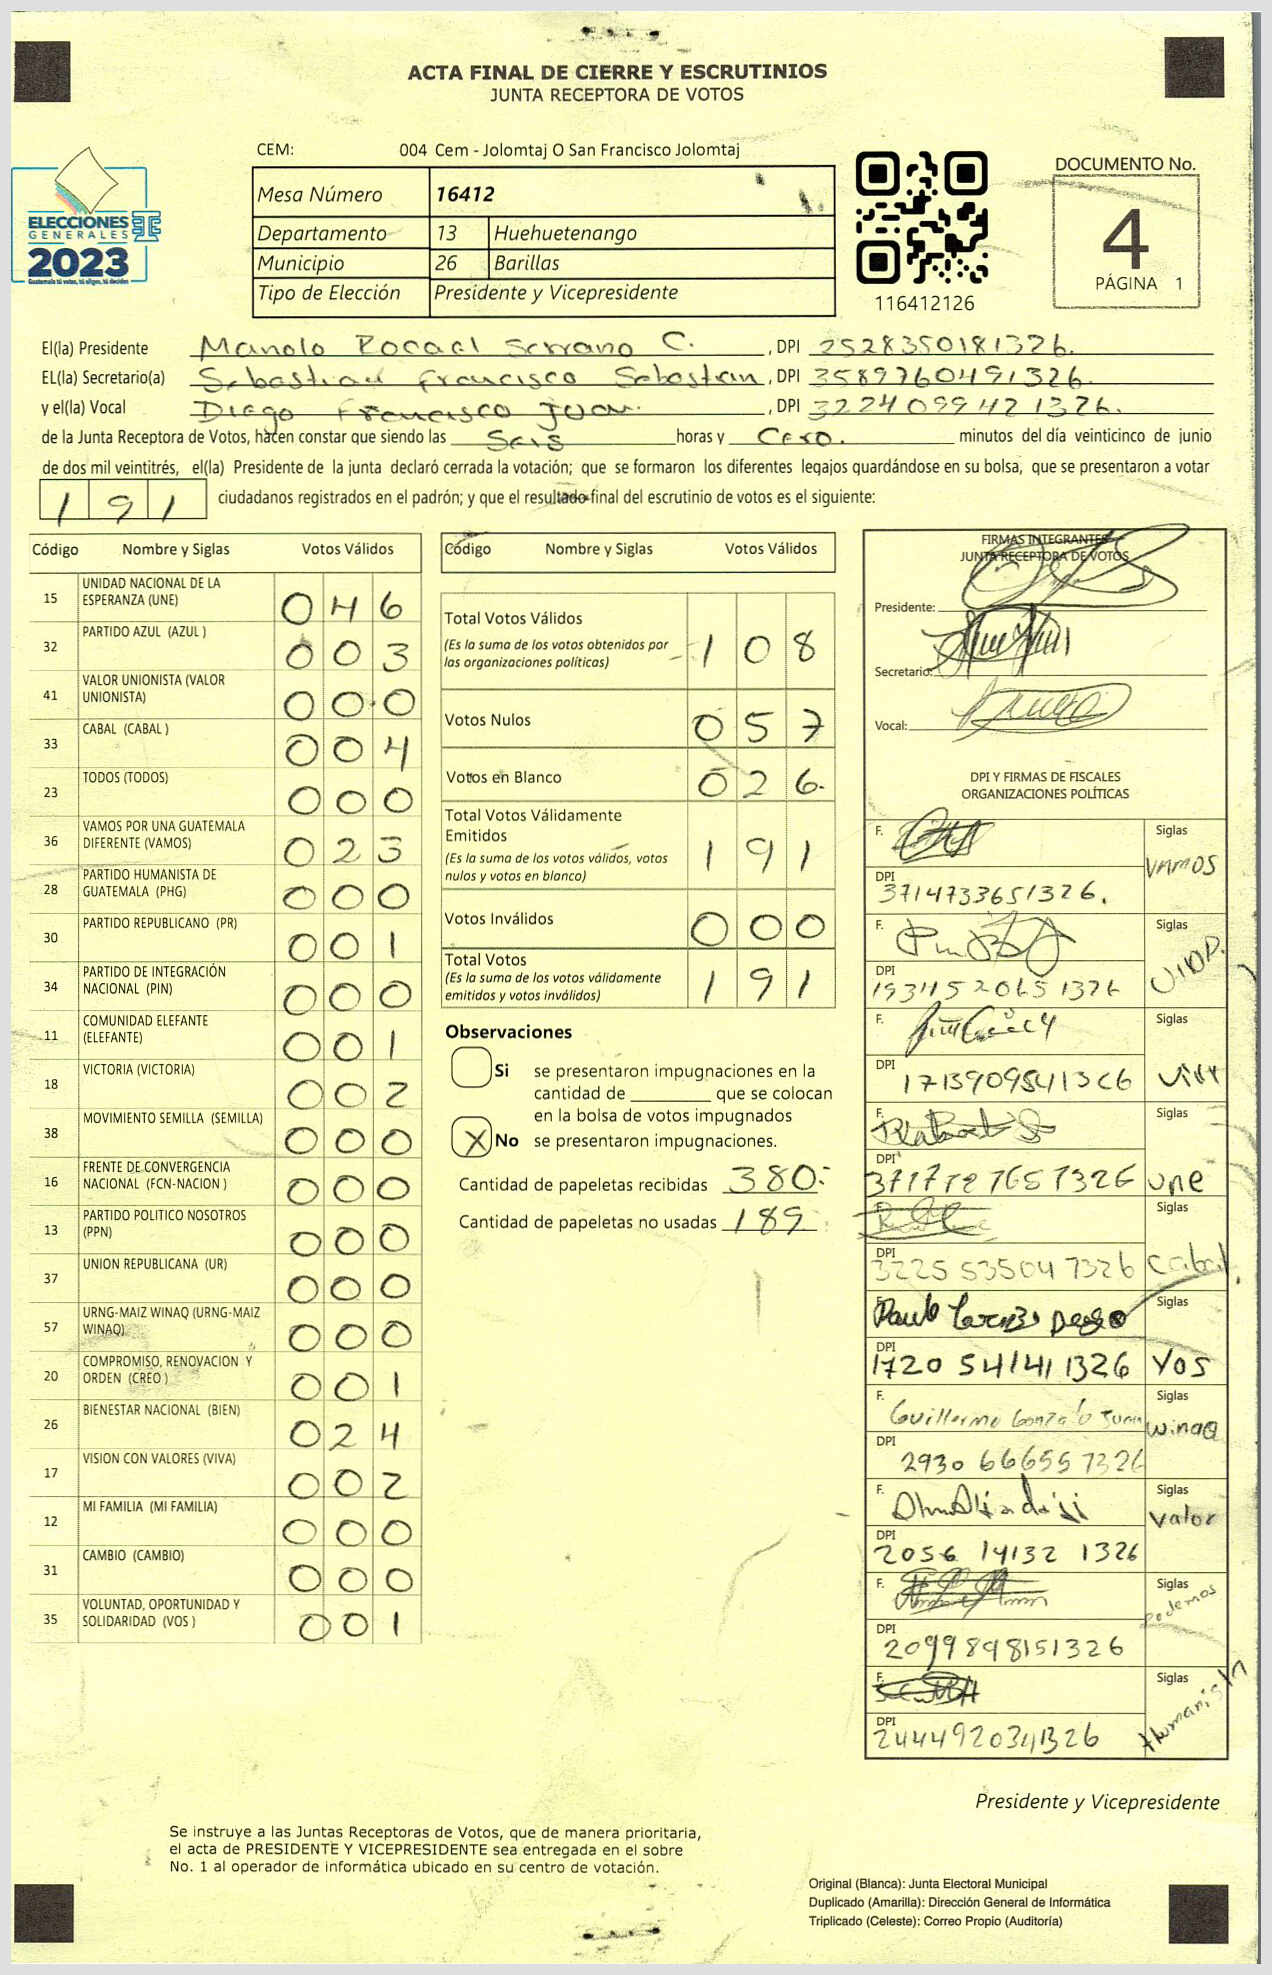 ACTA FINAL DE CIERRE Y ESCRUTINIOS
JUNTA RECEPTORA DE VOTOS
CEM: 004 Cem - Jolomtaj O San Francisco Jolomtaj
ELECCIONES
GENERALES
2023
Guatemala tú votas, tú eliges, tú decides
Mesa Número 16412
Departamento 13 Huehuetenango
Municipio 26 Barillas
Tipo de Elección Presidente y Vicepresidente
116412126
DOCUMENTO No.
4
PÁGINA 1
El(la) Presidente Manolo Rocael Serrano C. , DPI 2528350181326.
EL(la) Secretario(a) Sebastian Francisco Sebastian , DPI 3589760491326.
y el(la) Vocal Diego Francisco Juan. , DPI 3224099421326.
de la Junta Receptora de Votos, hacen constar que siendo las Seis horas y Cero. minutos del día veinticinco de junio
de dos mil veintitrés, el(la) Presidente de la junta declaró cerrada la votación; que se formaron los diferentes legajos guardándose en su bolsa, que se presentaron a votar
191 ciudadanos registrados en el padrón; y que el resultado final del escrutinio de votos es el siguiente:
Código Nombre y Siglas Votos Válidos
15 UNIDAD NACIONAL DE LA ESPERANZA (UNE) 046
32 PARTIDO AZUL (AZUL ) 003
41 VALOR UNIONISTA (VALOR UNIONISTA) 000
33 CABAL (CABAL ) 004
23 TODOS (TODOS) 000
36 VAMOS POR UNA GUATEMALA DIFERENTE (VAMOS) 023
28 PARTIDO HUMANISTA DE GUATEMALA (PHG) 000
30 PARTIDO REPUBLICANO (PR) 001
34 PARTIDO DE INTEGRACIÓN NACIONAL (PIN) 000
11 COMUNIDAD ELEFANTE (ELEFANTE) 001
18 VICTORIA (VICTORIA) 002
38 MOVIMIENTO SEMILLA (SEMILLA) 000
16 FRENTE DE CONVERGENCIA NACIONAL (FCN-NACION ) 000
13 PARTIDO POLITICO NOSOTROS (PPN) 000
37 UNION REPUBLICANA (UR) 000
57 URNG-MAIZ WINAQ (URNG-MAIZ WINAQ) 000
20 COMPROMISO, RENOVACION Y ORDEN (CREO ) 001
26 BIENESTAR NACIONAL (BIEN) 024
17 VISION CON VALORES (VIVA) 002
12 MI FAMILIA (MI FAMILIA) 000
31 CAMBIO (CAMBIO) 000
35 VOLUNTAD, OPORTUNIDAD Y SOLIDARIDAD (VOS ) 001
Código Nombre y Siglas Votos Válidos
Total Votos Válidos 108
(Es la suma de los votos obtenidos por
las organizaciones políticas)
Votos Nulos 057
Votos en Blanco 026.
Total Votos Válidamente
Emitidos 191
(Es la suma de los votos válidos, votos
nulos y votos en blanco)
Votos Inválidos 000
Total Votos 191
(Es la suma de los votos válidamente
emitidos y votos inválidos)
Observaciones
Si se presentaron impugnaciones en la
cantidad de ________ que se colocan
en la bolsa de votos impugnados
X No se presentaron impugnaciones.
Cantidad de papeletas recibidas 380.
Cantidad de papeletas no usadas 189
FIRMAS INTEGRANTES
JUNTA RECEPTORA DE VOTOS
Presidente:
Secretario:
Vocal:
DPI Y FIRMAS DE FISCALES
ORGANIZACIONES POLÍTICAS
F. Siglas VAMOS
DPI 3714733651326.
F. Siglas
DPI
F. Siglas
DPI
F. Siglas une
DPI
F. Siglas Cabal.
DPI 3225535047326
F. Siglas Vos
DPI 1720 54141 1326
F. Guillermo Gonzalo Juan Siglas WinaQ
DPI 2930 66655 7326
F. Siglas Valor
DPI 2056 14132 1326
F. Siglas Podemos
DPI 2099898151326
F. Siglas Humanista
DPI 2444920341326
Presidente y Vicepresidente
Se instruye a las Juntas Receptoras de Votos, que de manera prioritaria,
el acta de PRESIDENTE Y VICEPRESIDENTE sea entregada en el sobre
No. 1 al operador de informática ubicado en su centro de votación.
Original (Blanca): Junta Electoral Municipal
Duplicado (Amarilla): Dirección General de Informática
Triplicado (Celeste): Correo Propio (Auditoría)